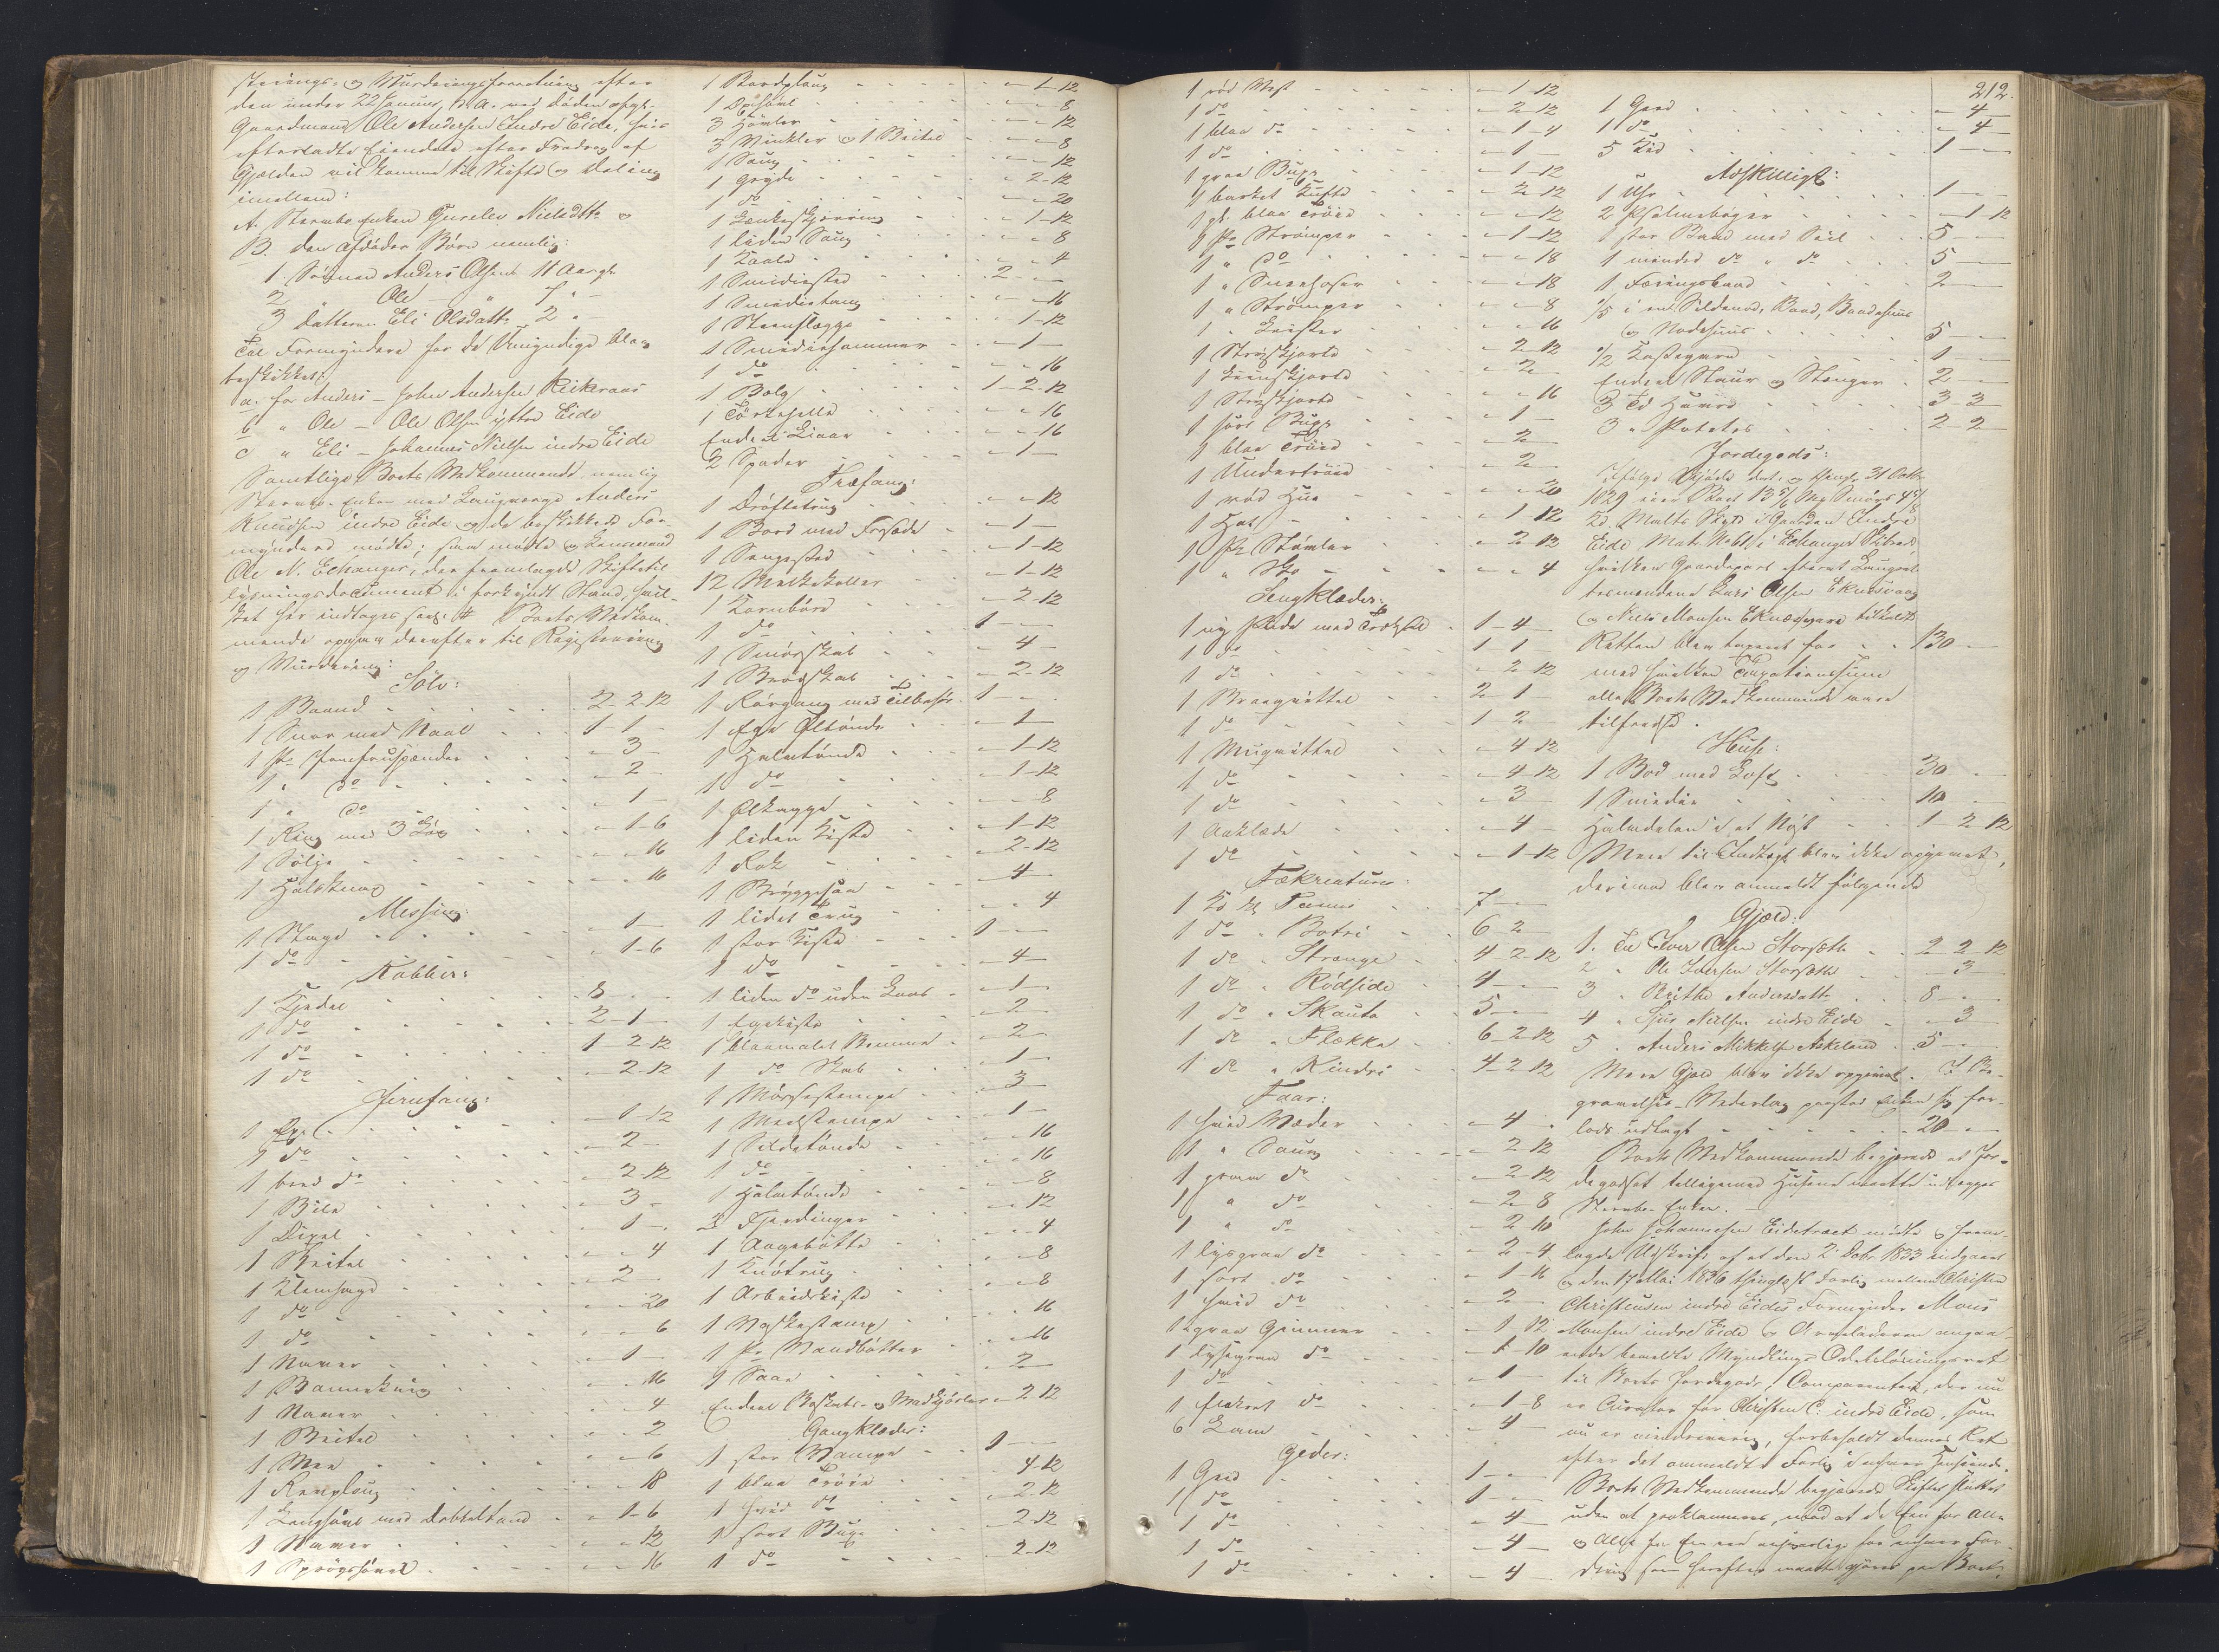 strerings- og Vurderingsforretning efter
den under 22 Januar, d. A. ved Døden afgk.
Gaardmand Ole Andersen Indre Eide, hvis
efterladte Eiendele efter Fradrag af
Gjælden vil komme til Skifte og Deling
imellem:
A. Stervbo Enken Gurelev Nielsdttr og
B. den Afdødes Børn nemlig:
1. Sønnen Anders Olsen 11 Aar gl.
2 Ole " 7 " -
3 Datteren Eli Olsdattr 2 "
Til Formyndere for de Umyndige blev
beskikket:
a. for Anders - John Andersen Kikeraas
b " Ole - Ole Olsen yttre Eide
c " Eli - Johannes Nielsen indre Eide
Samtlige Boets Vedkommende nemlig
Stervbo-Enken med Laugværge Anders
Knudsen indre Eide og de beskikkede For-
myndere mødte; saa mødte og Lensmand
Ole N. Echanger, der fremlagde Skiftetil
lysningsdocument i forkyndt Stand, hvil-
ket her indtages saal: # Boets Vedkom-
mende opgav derefter til Registrering
og Vurdering:
Sölv:
1 Baand - 2-2-12
1 Snor med Naal - 1-1-
1 Pr Jomfruspænder - 3-
1 " do - 2-
1 " do - 1-
1 Ring med 3 Løv - 1-6
1 Sölje - 16
1 Halsknap - 16
Messing:
1 Stage - 1-
1 do - 1-6
Kobber:
1 Kjedel 8 - -
1 do 2-1-
1 do 1-2-12
1 do - 2-12
Jernfang:
1 Øxe - 1-12
1 do - 2-
1 bred do - 2-12
1 Bile - 3-
1 Dixel - 1-
1 Beitel - 4
1 Klemhage - 2-
1 do - 20
1 do - 6
1 Naver - 1-
1 Bommekniv - 16
1 Naver - 4
1 Beitel - 2
1 Men - 6
1 Renplong - 18
1 Langhøvl med dobbelttand - 1-6
1 Naver - 12
1 Sproghøvel - 16
1 Bordplong - 1-12
1 Døshøvl - 8
3 Høvler - 12
3 Winkler og 1 Beitel - 8
1 Saug - 12
1 Gryde - 2-12
1 do - 20
1 Lænkeskjæring - 1-12
1 liden Saug - 8
1 Kaald - 4
1 Smidiested 2 - -
1 Smidietang - 16
1 Steenslægge - 1-12
1 Smidiehammer - 1-
1 do - 16
1 Bolg 1-2-12
1 Törrehelle - 16
Endel Liaar - 16
2 Spader - 1-
Træfang:
1 Dröftetrug - 12
1 Bord med Forsæde - 1-
1 Sengested - 1-12
12 Melkekoller - 1-12
1 Kornbörd - 2-12
1 do 1 - -
1 Smörskab - 4-
1 Brødskab - 2-12
1 Rörgang med Tilbehör 1 - -
1 Ege Øltönde - 1-
1 Halvtönde - 1-12
1 do - 1-12
1 Ølkagge - 8
1 liden Kiste - 1-12
1 Rok - 2-12
1 Bryggesaa - 4-
1 lidet Trug - 4
1 stor Kiste 1 - -
1 do - 4-
1 liden do uden Laas - 1-
1 Egekiste - 2-
1 blaamalet Bomme - 2-
1 do Skab - 1-
1 Mörsestampe - 3-
1 Meelstampe - 1-
1 Sildetönde - 16
1 do - 16
1 Halvtönde - 8
3 Fjerdinger - 12
1 Aagebötte - 4
1 Knötrug - 8
1 Arbeidskiste - 8
1 Vaskestamp - 16
1 Pr Vandbötter - 16
1 Saae - 2-
Endeel Boskabs- og Madkjørler - 2-12
Gangklæder:
1 stor Vampe 1 - -
1 blaa Tröie - 4-12
1 hvid do - 2-12
1 sort Buxe - 2-12
1 do - 2-12
1 rød Vest - 1-12
1 do - 2-12
1 blaa do - 1-4
1 do - 1-
1 graa Buxe - 1-12
1 barket Kufte - 2-12
1 gl. blaa Tröie - 12
1 Pr Strömper - 1-12
1 " do - 18
1 " Sneehoser - 18
1 " Strömper - 8
1 " Leister - 16
1 Strieskjorte - 2-12
1 Linnskjorte - 2-
1 Strieskjorte - 16
1 sort Buxe - 1-
1 blaa Tröie - 2-
1 Undertröie - 2-
1 rød Hue - 20
1 Hat - 1-12
1 Pr Støvler - 2-12
1 " Sko - 4
Sengklæder:
1 ny Pude med Trækfild 1-4-
1 do 1-1-
1 do - 2-12
1 Braagvittel 2-1-
1 do 1-2-
1 Mugvittel - 4-12
1 do - 4-12
1 do - 3-
1 Aaklæde - 4-
1 do - 1-12
Fækreature:
1 Ko kl Fanni 7 - -
1 do " Botri 6-2-
1 do " Strange 4-2-12
1 do " Rödside 4 - -
1 do " Skauta 5 - -
1 do " Flekka 6-2-12
1 do " Rindri 4-2-12
Faar:
1 hvid Væder - 4-
1 " Saug - 2-12
1 graa do - 2-12
1 " do - 2-8
1 " do - 2-10
1 lysgraa do - 2-4
1 sort do - 1-16
1 hvid do - 2-
1 graa Gimmer - 1-12
1 lysegraa do - 1-10
1 do - 1-
1 flekket do - 1-8
6 Lam - 4-
Geder:
1 Geed 1 - -
1 do 1 - -
1 do - 4-
1 do - 4-
1 do - 4-
212.
1 Geed - 4-
1 do - 4-
5 Kid 1 - -
Adskilligt:
1 Uhr 1 - -
2 Psalmebøger - 1-12
1 stor Baad med Seil 5 - -
1 mindre do " do 5 - -
1 Færingsbaad 2 - -
1/5 i en Sildenod, Baad, Baadehuus
og Nodehuus 5 - -
1/2 Kastegarn 1 - -
Endeel Staur og Stænger 2 - -
3 Td Havre 3-3-
3 " Potetes 2-2-
Jordegods:
Ifølge Skjøde dat. og thingl. 31 Octbr
1829 eier Boet 13 5/6 Mg Smörs 4 5/8
Kd. Malts Skyld i Gaarden Indre
Eide Matr. No 61, i Echanger Skibrede
hvilken Gaardepart efterat Laugrets
tesmændene Lars Olsen Eknesvaag
og Niels Monsen Eknæsøren tilkaldt
Retten blev taxeret for 130 -
med hvilken Taxationssum
alle Boets Vedkommende vare
tilfreds.
Huse:
1 Bod med Loft 30 - -
1 Smidie 10 - -
Halvdelen i et Nøst 1-2-12
Mere til Indtægt blev ikke opgivet,
derimod blev anmeldt følgende
Gjæld:
1. Til Iver Olsen Storsæth 2-2-12
2 " Ole Iversen Storsæth - 3-
3 " Brithe Andersdattr 8 - -
4 " Sjur Nielsen indre Eide - 3-
5 " Anders Mikkels Askeland 5 - -
Mere Gjæld blev ikke opgivet. I Be-
gravelses-Vederlag paastod Enken sig for-
lods udlagt 20 - -
Boets Vedkommende begjerede at Jor-
degodset tilligemed Husene maatte udlægges
Stervbo-Enken. -
John Johannesen Eidetræet mødte og frem-
lagde Udskrift af et den 2 Dobr 1833 indgaaet
og den 17 Mai 1836 thinglæst Forlig mellem Christen
Christensen indre Eides Formynder Mons
Monsen indre Eide og Arveladeren angaa-
ende bemeldte Myndlings Odelsløsningsret
til Boets Jordegods. Comparenten, der nu
er Curator for Christen C: indre Eide, som
nu er mindreaarig, forbeholdt dennes Ret
efter det anmeldte Forlig i enhver Henseende.
Boets Vedkommende begjerede Skiftet sluttet
uden at proklameres, mod at de Een for Alle
og Alle for Een ere ansvarlige for enhver For-
dring som herefter maatte gjøres paa Boet,